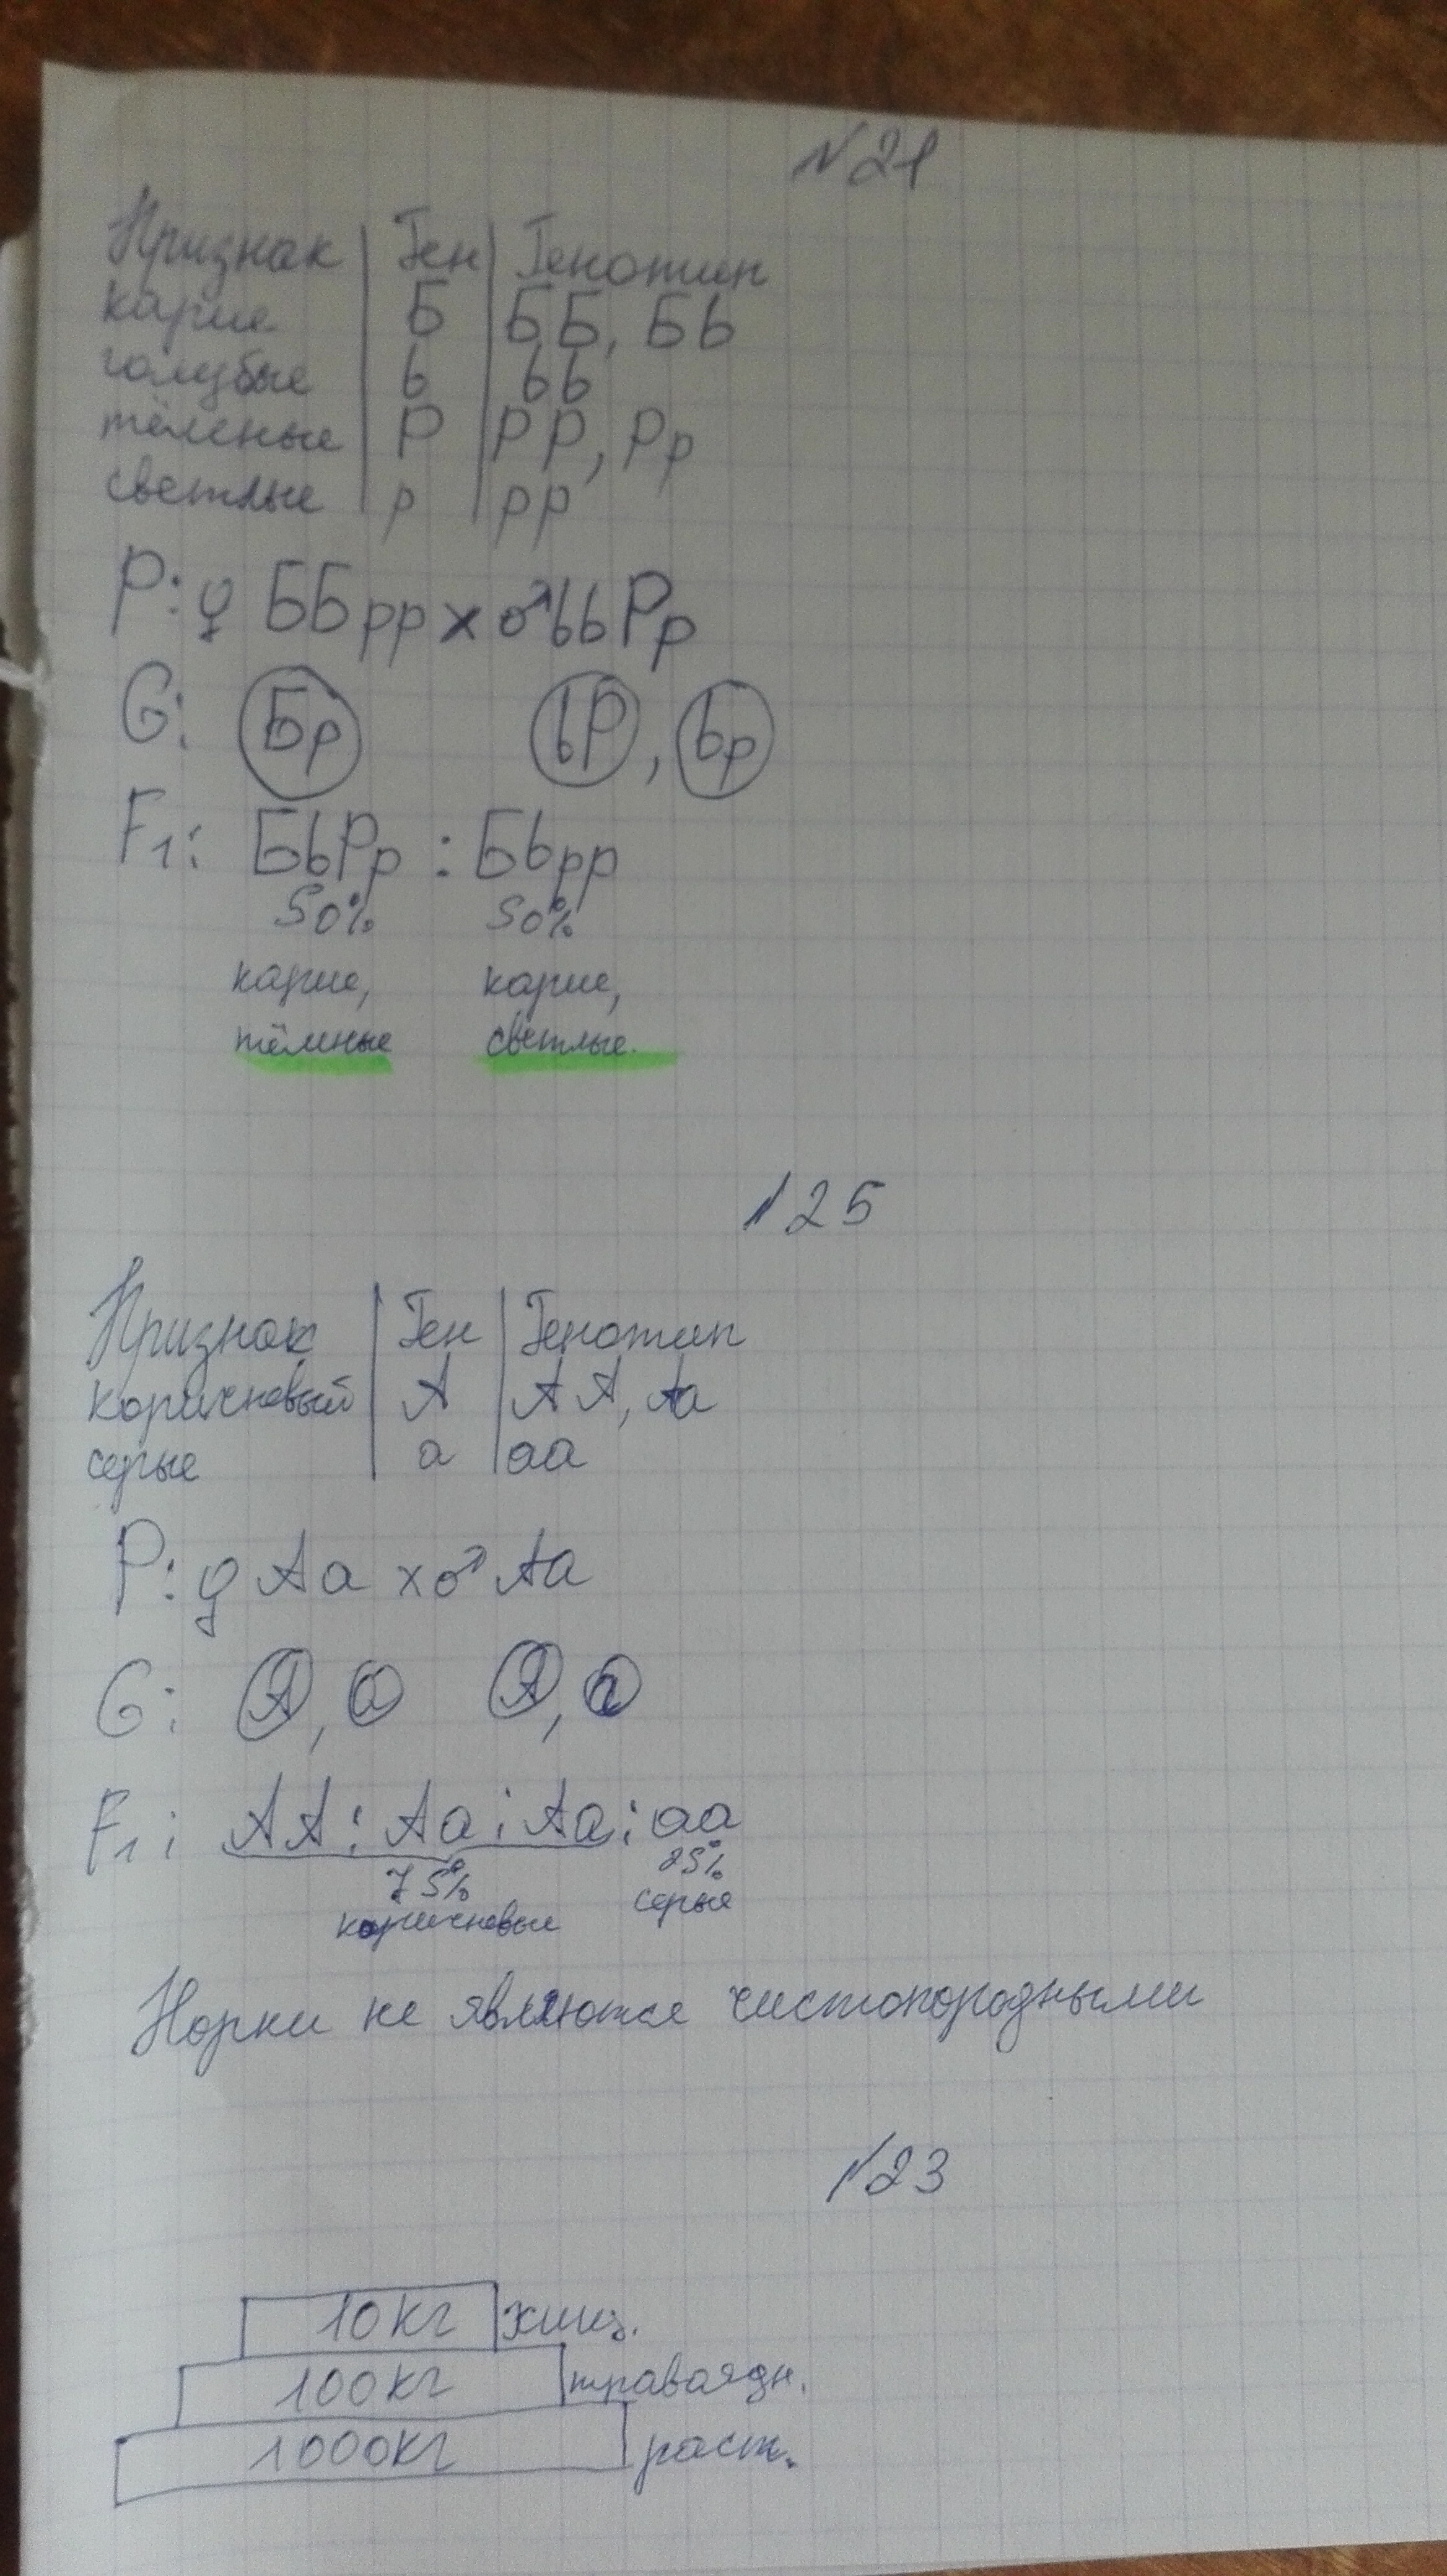 №21
Признак | Ген | Генотип
карие | Б | ББ, Бb
голубые | b | bb
тёмные | Р | РР, Рр
светлые | р | рр
Р: ♀ ББрр х ♂ bbРр
G: Бр bР, bр
F1: БbРр : Бbрр
50% 50%
карие, карие,
тёмные светлые.
№25
Признак | Ген | Генотип
коричневый | А | АА, Аа
серые | а | аа
Р: ♀ Аа х ♂ Аа
G: А, а А, а
F1: АА : Аа : Аа : аа
75% 25%
коричневые серые
Норки не являются чистопородными
№23
10кг хищ.
100кг траваядн.
1000кг раст.